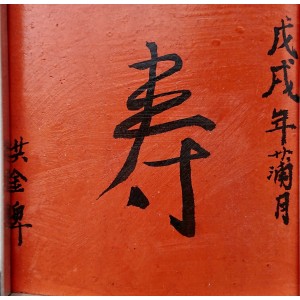 戊戌年蒲月
寿
洪金碑